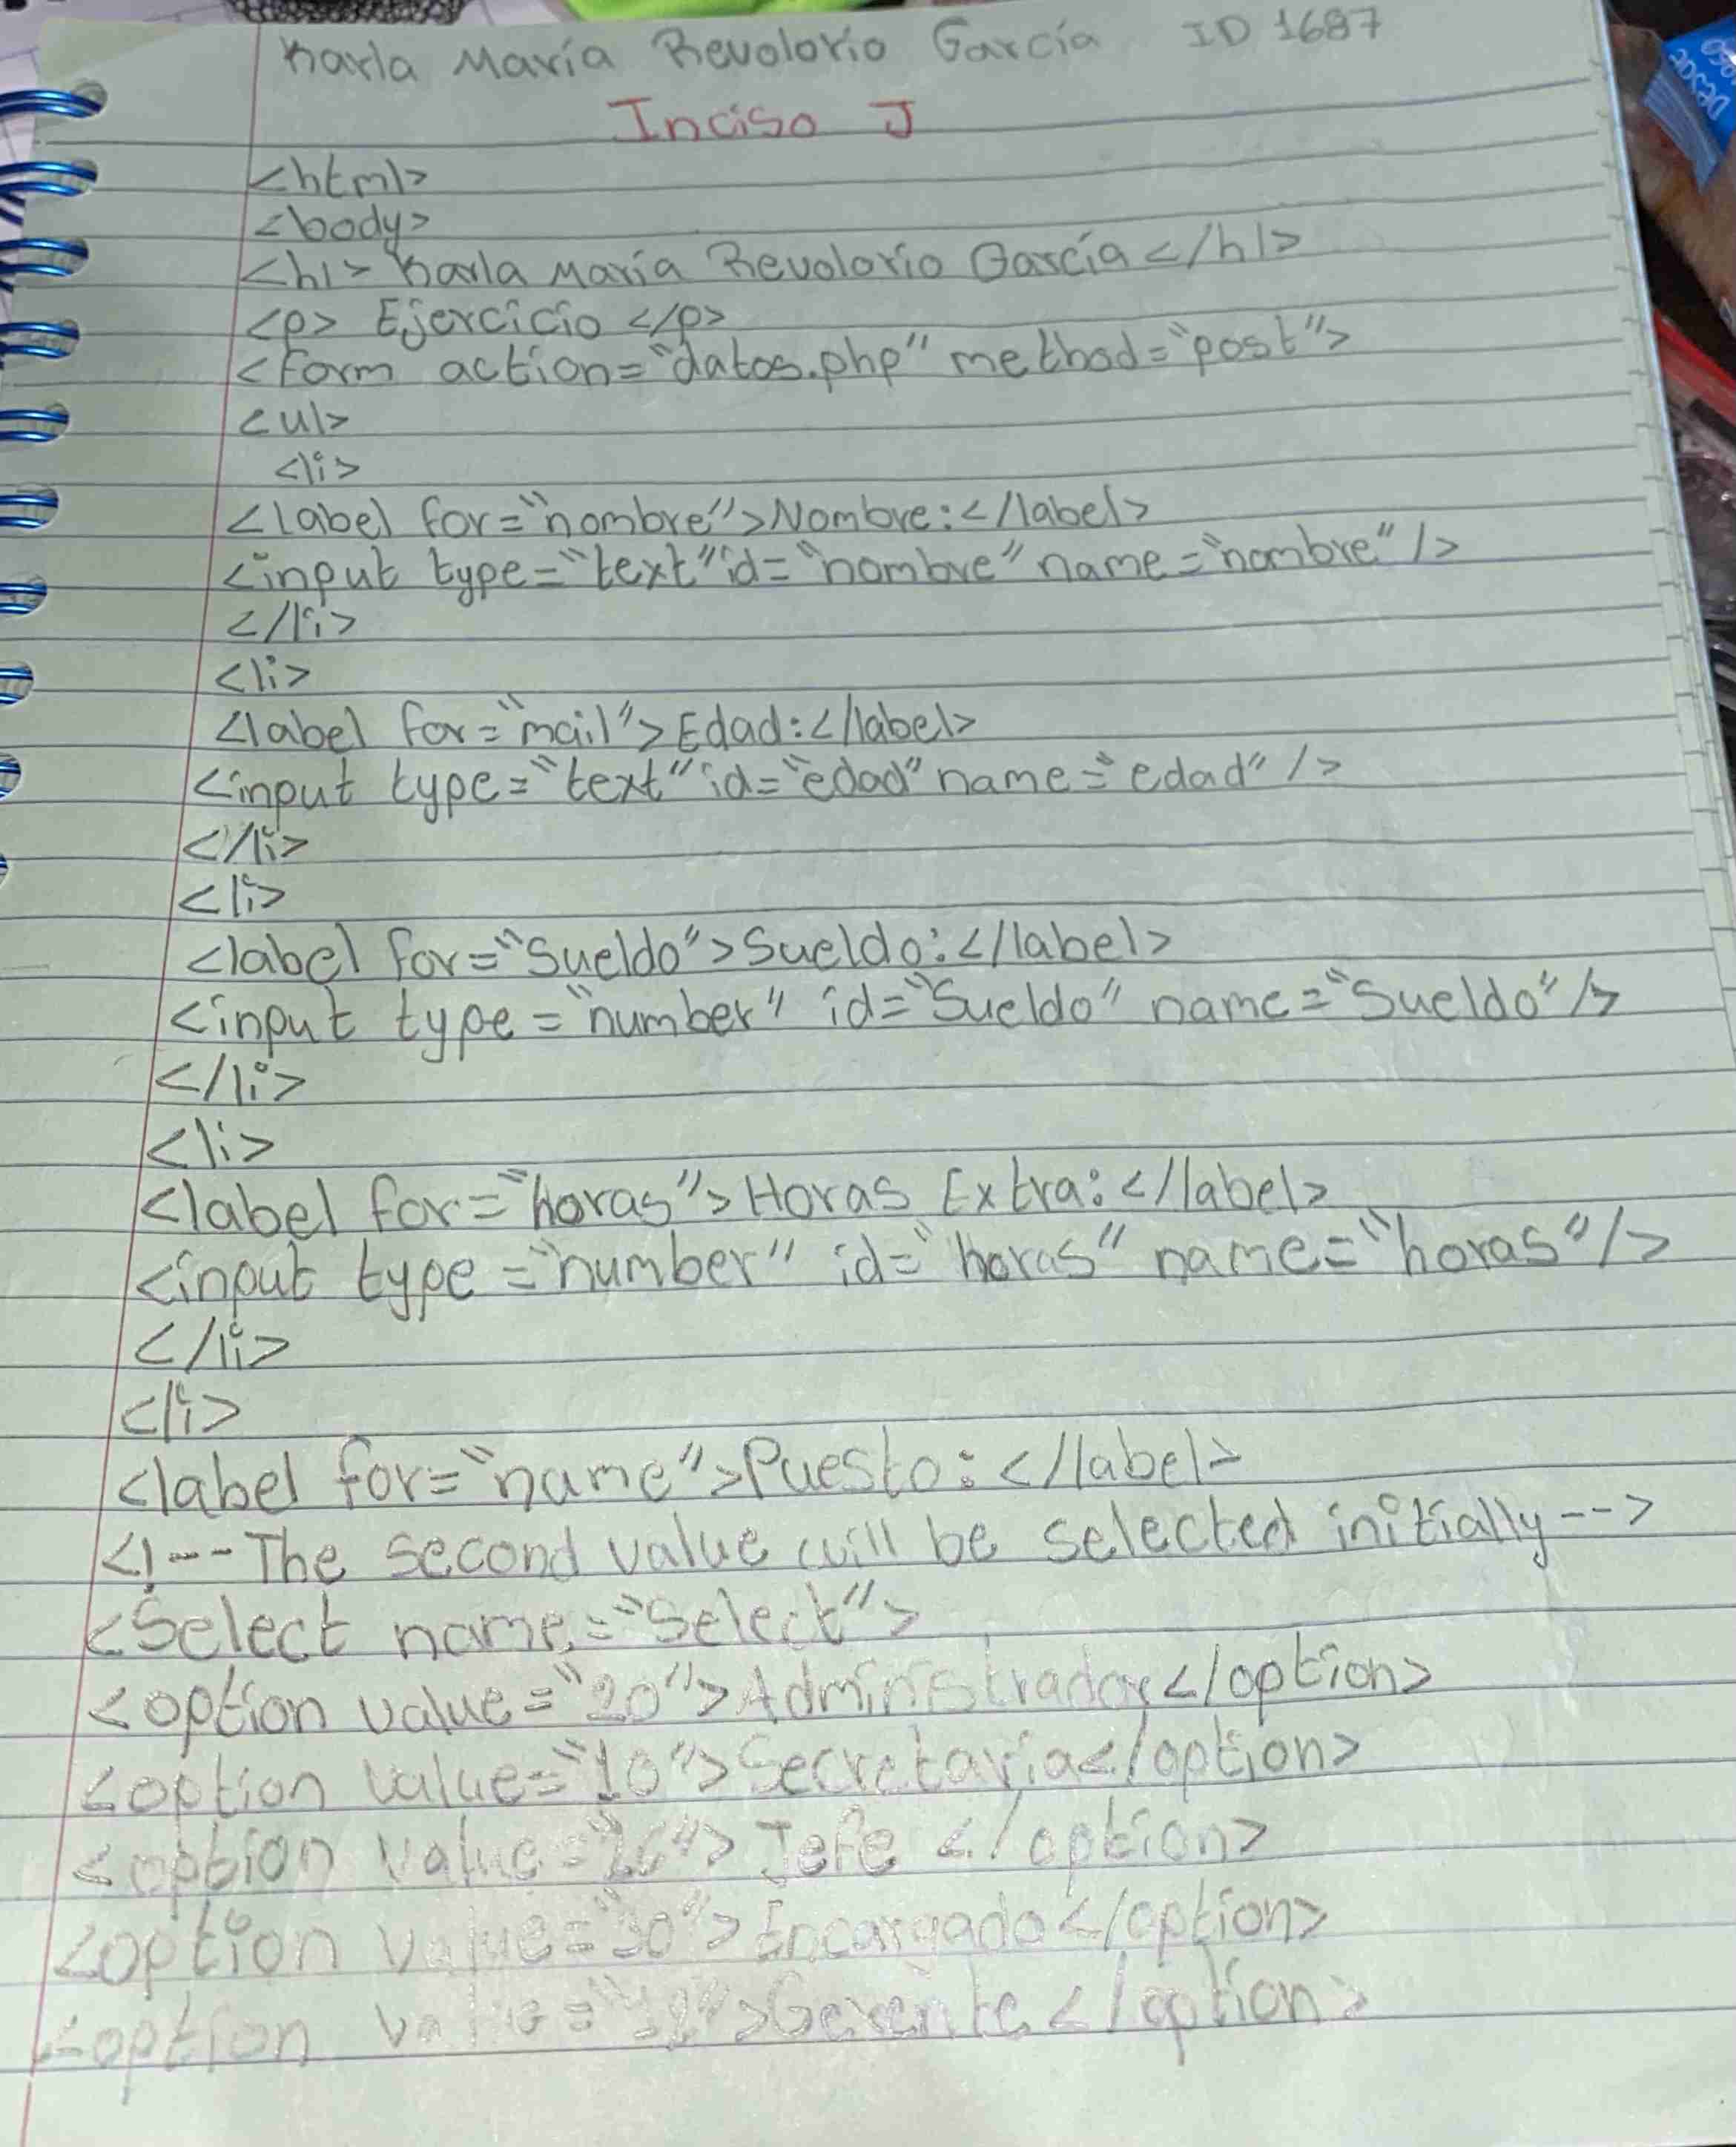 Karla María Revolorio García ID 1687
Inciso J
<html>
<body>
<h1> Karla María Revolorio García </h1>
<p> Ejercicio </p>
<form action="datos.php" method="post">
<ul>
<li>
<label for="nombre">Nombre:</label>
<input type="text" id="nombre" name="nombre" />
</li>
<li>
<label for="mail">Edad:</label>
<input type="text" id="edad" name="edad" />
</li>
<li>
<label for="Sueldo">Sueldo:</label>
<input type="number" id="Sueldo" name="Sueldo" />
</li>
<li>
<label for="horas">Horas Extra:</label>
<input type="number" id="horas" name="horas"/>
</li>
<li>
<label for="name">Puesto:</label>
<!--The second value will be selected initially-->
<Select name="Select">
<option value="20">Administrador</option>
<option value="10">Secretaria</option>
<option Jefe </option>
<option value="30">Encargado</option>
<option Gerente</option>